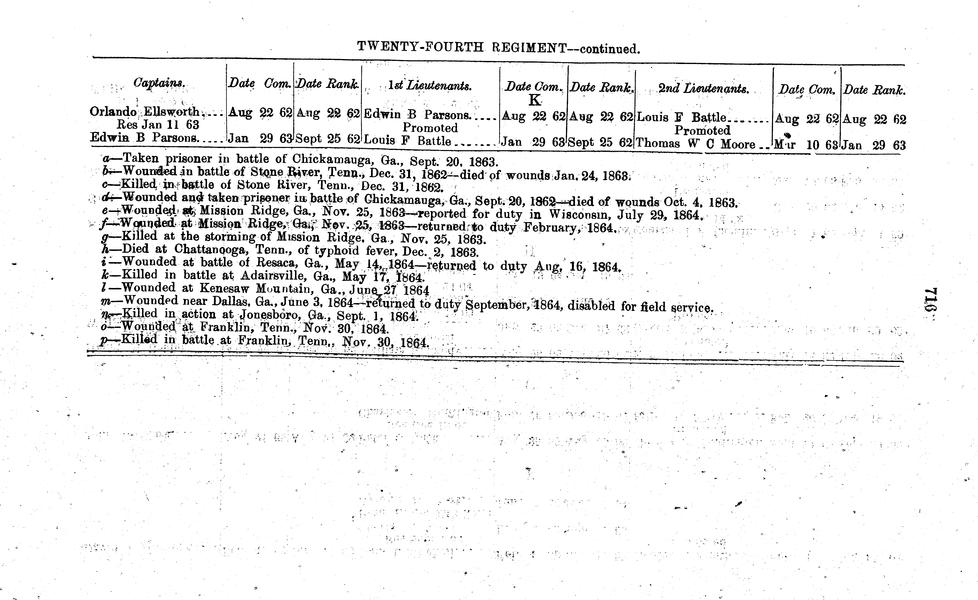 TWENTY-FOURTH REGIMENT—continued.
Captains. Date Com. Date Rank. 1st Lieutenants. Date Com. Date Rank. 2nd Lieutenants. Date Com. Date Rank.
K
Orlando Ellsworth.... Aug 22 62 Aug 22 62 Edwin B Parsons..... Aug 22 62 Aug 22 62 Louis F Battle....... Aug 22 62 Aug 22 62
Res Jan 11 63 Promoted Promoted
Edwin B Parsons..... Jan 29 63 Sept 25 62 Louis F Battle ....... Jan 29 63 Sept 25 62 Thomas W C Moore .. Mar 10 63 Jan 29 63
a—Taken prisoner in battle of Chickamauga, Ga., Sept. 20, 1863.
b—Wounded in battle of Stone River, Tenn., Dec. 31, 1862—died of wounds Jan. 24, 1863.
c—Killed in battle of Stone River, Tenn., Dec. 31, 1862.
d—Wounded and taken prisoner in battle of Chickamauga, Ga., Sept. 20, 1862—died of wounds Oct. 4, 1863.
e—Wounded at Mission Ridge, Ga., Nov. 25, 1863—reported for duty in Wisconsin, July 29, 1864.
f—Wounded at Mission Ridge, Ga., Nov. 25, 1863—returned to duty February, 1864.
g—Killed at the storming of Mission Ridge, Ga., Nov. 25, 1863.
h—Died at Chattanooga, Tenn., of typhoid fever, Dec. 2, 1863.
i—Wounded at battle of Resaca, Ga., May 14, 1864—returned to duty Aug. 16, 1864.
k—Killed in battle at Adairsville, Ga., May 17, 1864.
l—Wounded at Kenesaw Mountain, Ga., June 27 1864
m—Wounded near Dallas, Ga., June 3, 1864—returned to duty September, 1864, disabled for field service.
n—Killed in action at Jonesboro, Ga., Sept. 1, 1864.
o—Wounded at Franklin, Tenn., Nov. 30, 1864.
p—Killed in battle at Franklin, Tenn., Nov. 30, 1864.
716